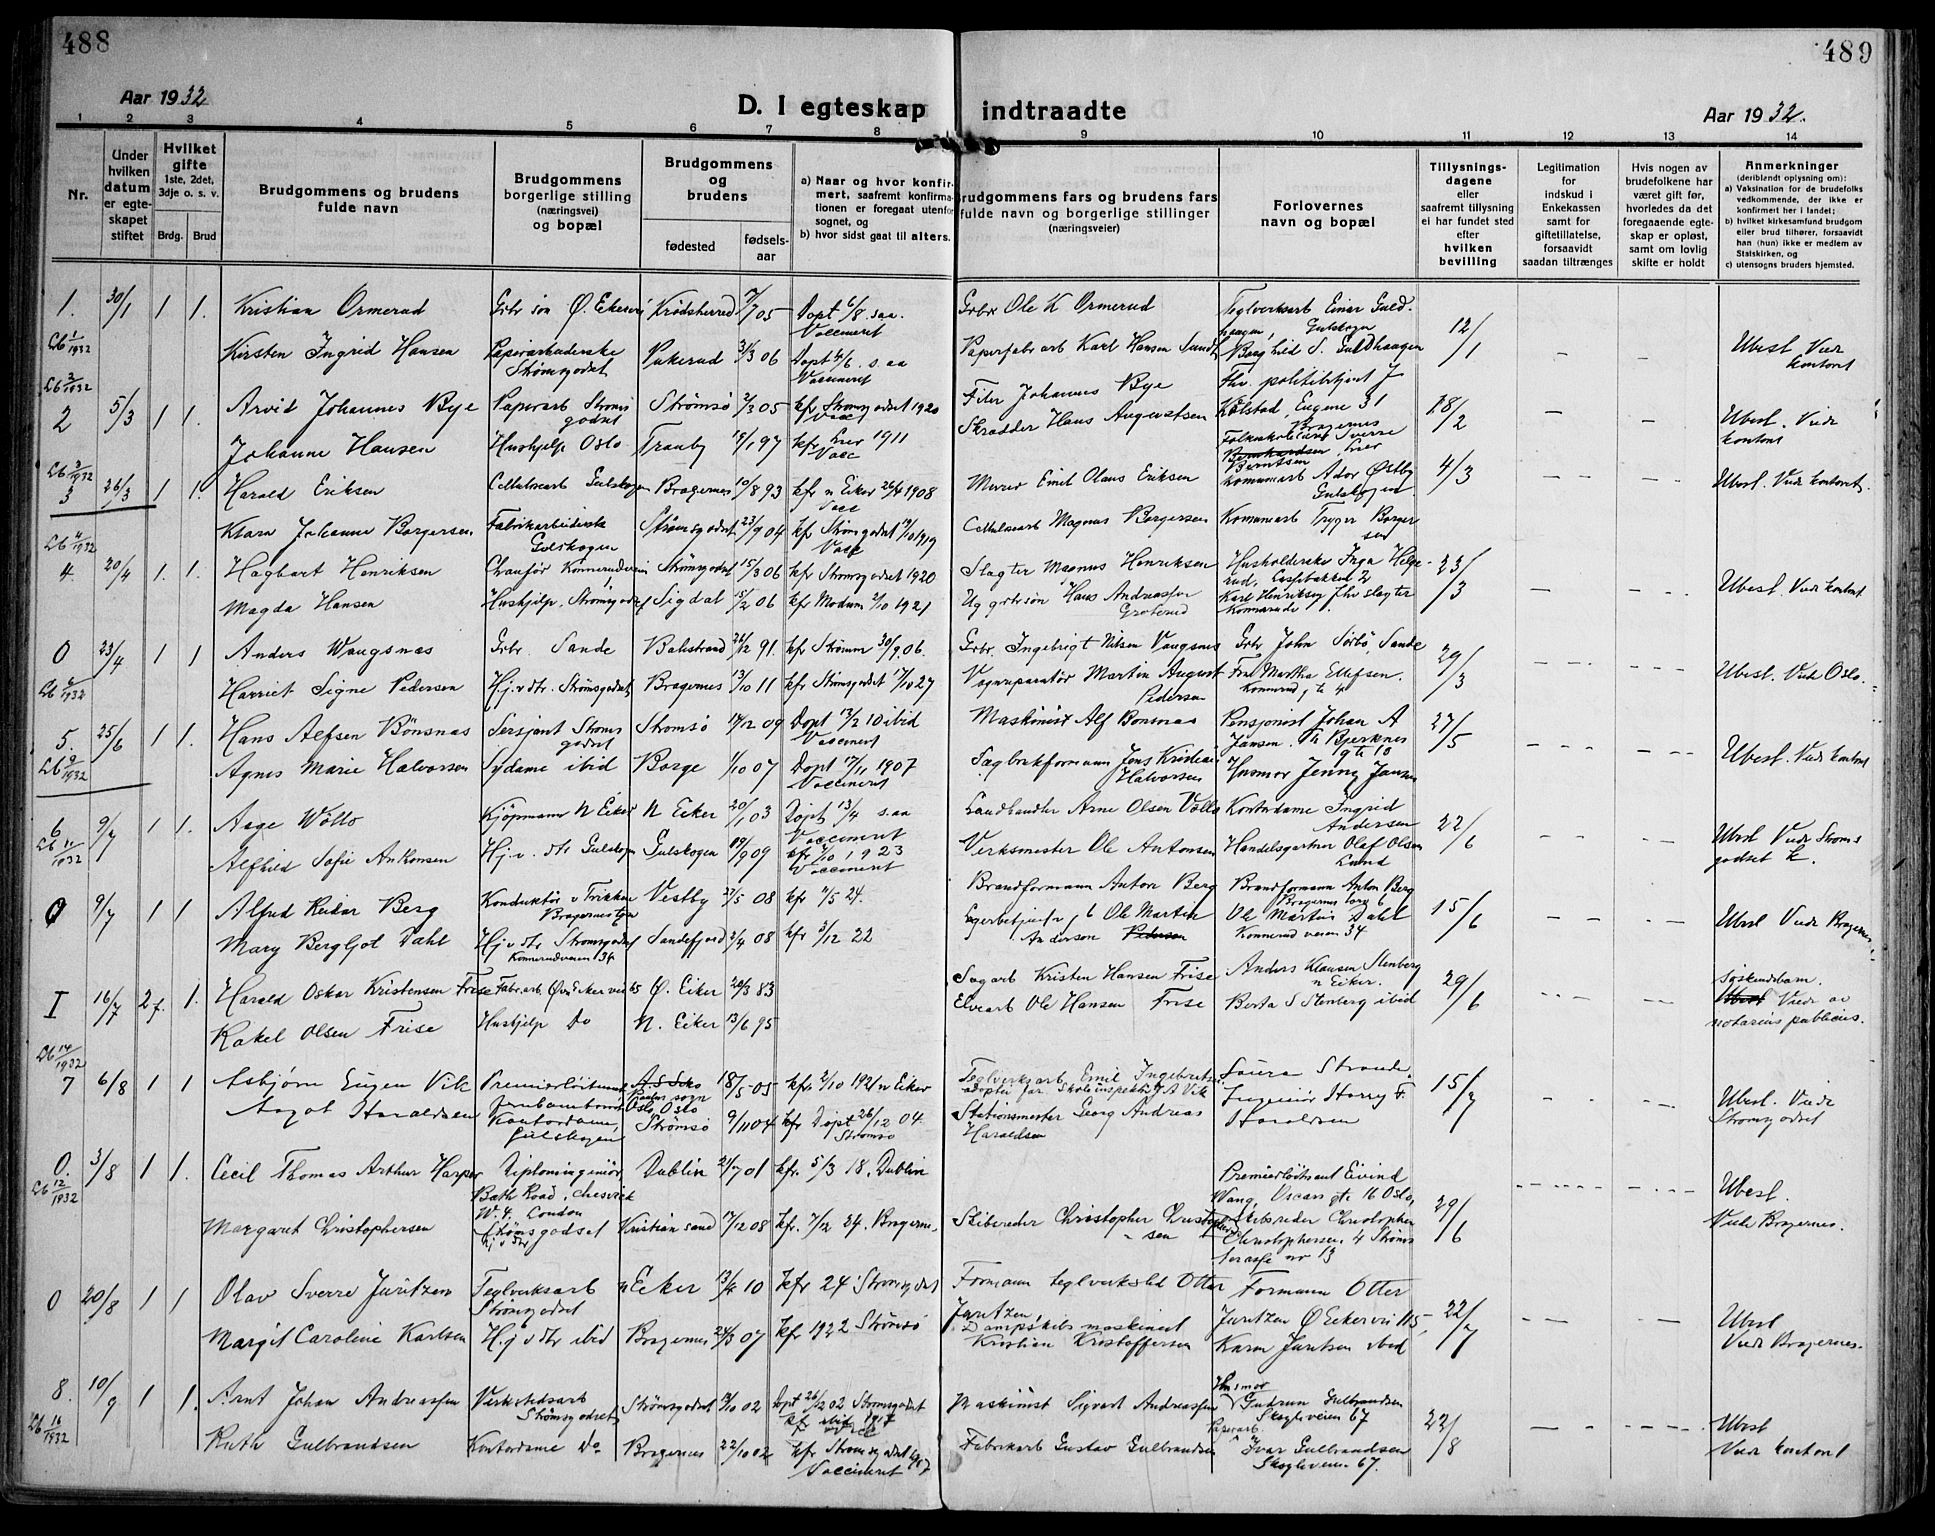 488
489
Aar 1932
D. I egteskap indtraadte
Aar 1932.
1 2 3 4 5 6 7 8 9 10 11 12 13 14
Nr.
Under hvilken datum er egteskapet stiftet
Hvilket gifte 1ste, 2det, 3dje o. s. v.
Brdg. Brud
Brudgommens og brudens fulde navn
Brudgommens borgerlige stilling (næringsvei) og bopæl
Brudgommens og brudens
fødested
fødselsaar
a) Naar og hvor konfirmert, saafremt konfirmationen er foregaat utenfor sognet, og
b) hvor sidst gaat til alters.
Brudgommens fars og brudens fars fulde navn og borgerlige stillinger (næringsveier)
Forlovernes navn og bopæl
Tillysningsdagene eller saafremt tillysning ei har fundet sted efter hvilken bevilling
Legitimation for indskud i Enkekassen samt for giftetillatelse, forsaavidt saadan tiltrænges
Hvis nogen av brudefolkene har været gift før, hvorledes da det foregaaende egteskap er opløst, samt om lovlig skifte er holdt
Anmerkninger (deriblandt oplysning om):
a) Vaksination for de brudefolks vedkommende, der ikke er konfirmert her i landet;
b) hvilket kirkesamfund brudgom eller brud tilhører, forsaavidt han (hun) ikke er medlem av Statskirken, og
c) utensogns bruders hjemsted.
1. 30/1 1 1. Kristian Ormerud Grbr søn Ø. Eker Krødsherred 05 Døpt 6/8 s.aa. Vaccineret Grbr Ole K Ormerud Teglverksarb Einar Guldhaagen, Gulskogen 12/1
Lb 1/1932 Kirsten Ingrid Hansen Papirarbeiderske Strømsgodset Pukerud 31/3 06 Døpt 4/6 s. aa Vaccineret Papirfabarb Karl Hansen Borghild S. Guldhaagen Ubest Viede kontoret
Lb 2/1932
2 5/3 1 1. Arvid Johannes Bye Papirarb Strømsgodset Strømsø 2/3 05 kfr Strømsgodset 1920 Vacc Filer Johannes Bye Fhv. politibetjent J Kolstad, Eugene 31 Bragernes 18/2
Johanne Hansen Hushjelp Oslo Tranby 19/1 97 kfr Lier 1911 Vacc Skrædder Hans Augustsen Sverre Berntsen Lier Ubest. Viede kontoret
Lb 3/1932
3 26/3 1 1. Harald Eriksen Cellulosearb Gulskogen Bragernes 10/8 93 kfr n Eiker 26/4 1908 Vacc Murer Emil Olaus Eriksen Kommunearb Ador Østby Gulskogen 4/3 Ubest. Viede kontoret.
Lb 4/1932 Klara Johanne Borgersen Fabrikarbeiderske Gulskogen Strømsgodset 23/9 04 kfr Strømsgodset 19/10 1919 Vacc Cellulosearb Magnus Borgersen Kommunearb Trygve Borgersen
4 20/4 1. 1. Hagbart Henriksen Chauffør Strømsgodset 15/3 06 kfr Strømsgodset 1920 Slagter Magnus Henriksen Husholderske Inga Helgerud 23/3
Magda Hansen Hushjelp, Strømsgodset Sigdal 15/2 06 kfr Modum 2/10 1921 Hans Andreassen Groterud Karl Henriksen fhv slagter Konnerude Ubest. Viede kontoret
0 23/4 1 1 Anders Wangsnæs Grbr. Sande Balestrand 26/12 91. kfr Strømm 30/9 06. Grbr. Ingebrigt Nilsen Vangsnes Grbr John Sørbø Sande 29/3
Lb 6/1932 Harriet Signe Pedersen Hj. v dtr. Strømsgodset Bragernes 13/10 11 kfr Strømsgodset 17/10 27 Vognreparatør Martin August Pedersen Fru Martha Ellefsen. Konnerud gt 4 Ubest. Viede Oslo.
5. 25/6 1 1. Hans Alfsen Bønsnæs Sersjant Strømsgodset Strømsø 14/12 09 Døpt 13/2 10 ibid Vaccineret Maskinist Alf Bonsnæs Pensjonist Johan A Jansen. Th Bjerknes gt 10 27/5
Lb 9/1932 Agnes Marie Halvorsen Sydame ibid Borge 1/10 07 Døpt 17/11 1907 Vaccineret Sagbrukformann Jens Kristian Halvorsen Husmor Jenny Jansen Ubest. Viede kontoret
6 9/7 1 1. Aage Wølto Kjøpmann N Eiker N Eiker 20/1 03 Døpt 13/4 s.aa Vaccineret Landhandler Arne Olsen Vølto Kontordame Ingrid Andersen 22/6
Lb 11/1932 Alfhild Sofie Antonsen Hj. v. dtr Gulskogen Gulskogen 19/9 09 kfr 7/10 1923 Vaccineret Verksmester Ole Antonsen Handelsgartner Olaf Olsen Lund Ubest Viede Strømsgodset k.
0 9/7 1 1 Alfred Reidar Berg Konduktør v Trikken Bragernes Vestby 27/5 08 kfr 11/5 24. Brandformann Anton Berg Brandformann Anton Berg Bragernes torv 6 15/6
Mary Bergljot Dahl Hj v dtr Strømsgodset Konnerudveien 34 Sandefjord 2/4 08 kfr 3/12 22 Ole Martin Anderson Pedersen Ole Martin Dahl Konnerud veien 34 Ubest Viede Bragernes
I 16/7 2 f. 1. Harald Oskar Kristensen Frise Fabr.arb. Øvre Eiker Ø. Eiker 20/3 83 Sagarb Kristen Hansen Frise Anders Klausen Stenberg n Eiker. 29/6
Rakel Olsen Frise Hushjelp Do N. Eiker 13/6 95 Elvearb Ole Hansen Frise Berta S Stenberg ibid Søskendebarn. Viede av notarius publicus.
Lb 14/1932
7 6/8 1 1 Asbjørn Eugen Vik Premierløitnant Oslo, Oslo 18/5 05 kfr 2/10 1921 n Eiker Teglverksarb Emil Ingebretsen adoptiv far Skoleinspektør A Vik Laura Strande. 15/7
Aagot Haraldsen Kontordame, Gulskogen Strømsø 9/11 04 kfr Døpt 26/12 04. Strømsø Stationsmester Georg Andreas Haraldsen Ingeniør Harry F. Haraldsen Ubest. Viede Strømsgodset
0. 3/8 1 1. Cecil Thomas Arthur Harper Diplomingeniør, Bath Road, Chiswick W. 4. London Dublin 21/7 01 kfr. 5/3 18. Dublin Premierløitnant Eivind Wang, Oscars gt. 16 Oslo,
Lb 12/1932 Margaret Christophersen Strømsgodset hj v dtr Kristiansand 17/12 08 kfr. 7/12 24. Bragernes Skibsreder Christopher Christophersen Skibsreder Christopher Christophersen. 4 Strøms terasse nr 13 29/6 Ubest. Viede Bragernes.
0 20/8 1 1 Olav Sverre Juritzen Teglverksarb Strømsgodset n Eiker 13/4 10 kfr 24 Strømsgodset Formann teglverksarb Otter Juritzen, Formann Otter Juritzen Ø Eikervei 115 22/7
Margit Caroline Karlsen Hj v dtr ibid Bragernes 24/3 07 kfr 1922 Strømsø Dampskibs maskinist Kristian Kristoffersen Karen Juritzen ibid Ubest Viede Bragernes.
8. 10/9 1 1. Arnt Johan Andreassen Verkstedsarb Strømsgodset Strømsgodset 13/10 02 Døpt 26/12 02 Strømsgodset kfr ibid 1917 Maskinist Sigvart Andreassen Husmor Gudrun Gulbrandsen Skogliveien 67 22/8
Lb 16/1932 Ruth Gulbrandsen Kontordame Do Bragernes 22/10 02 kfr Strømsgodset 1917 Vaccineret Fabrikarb Gustav Gulbrandsen Paperarb Ivar Gulbrandsen Skogliveien 67. Ubest Viede kontoret